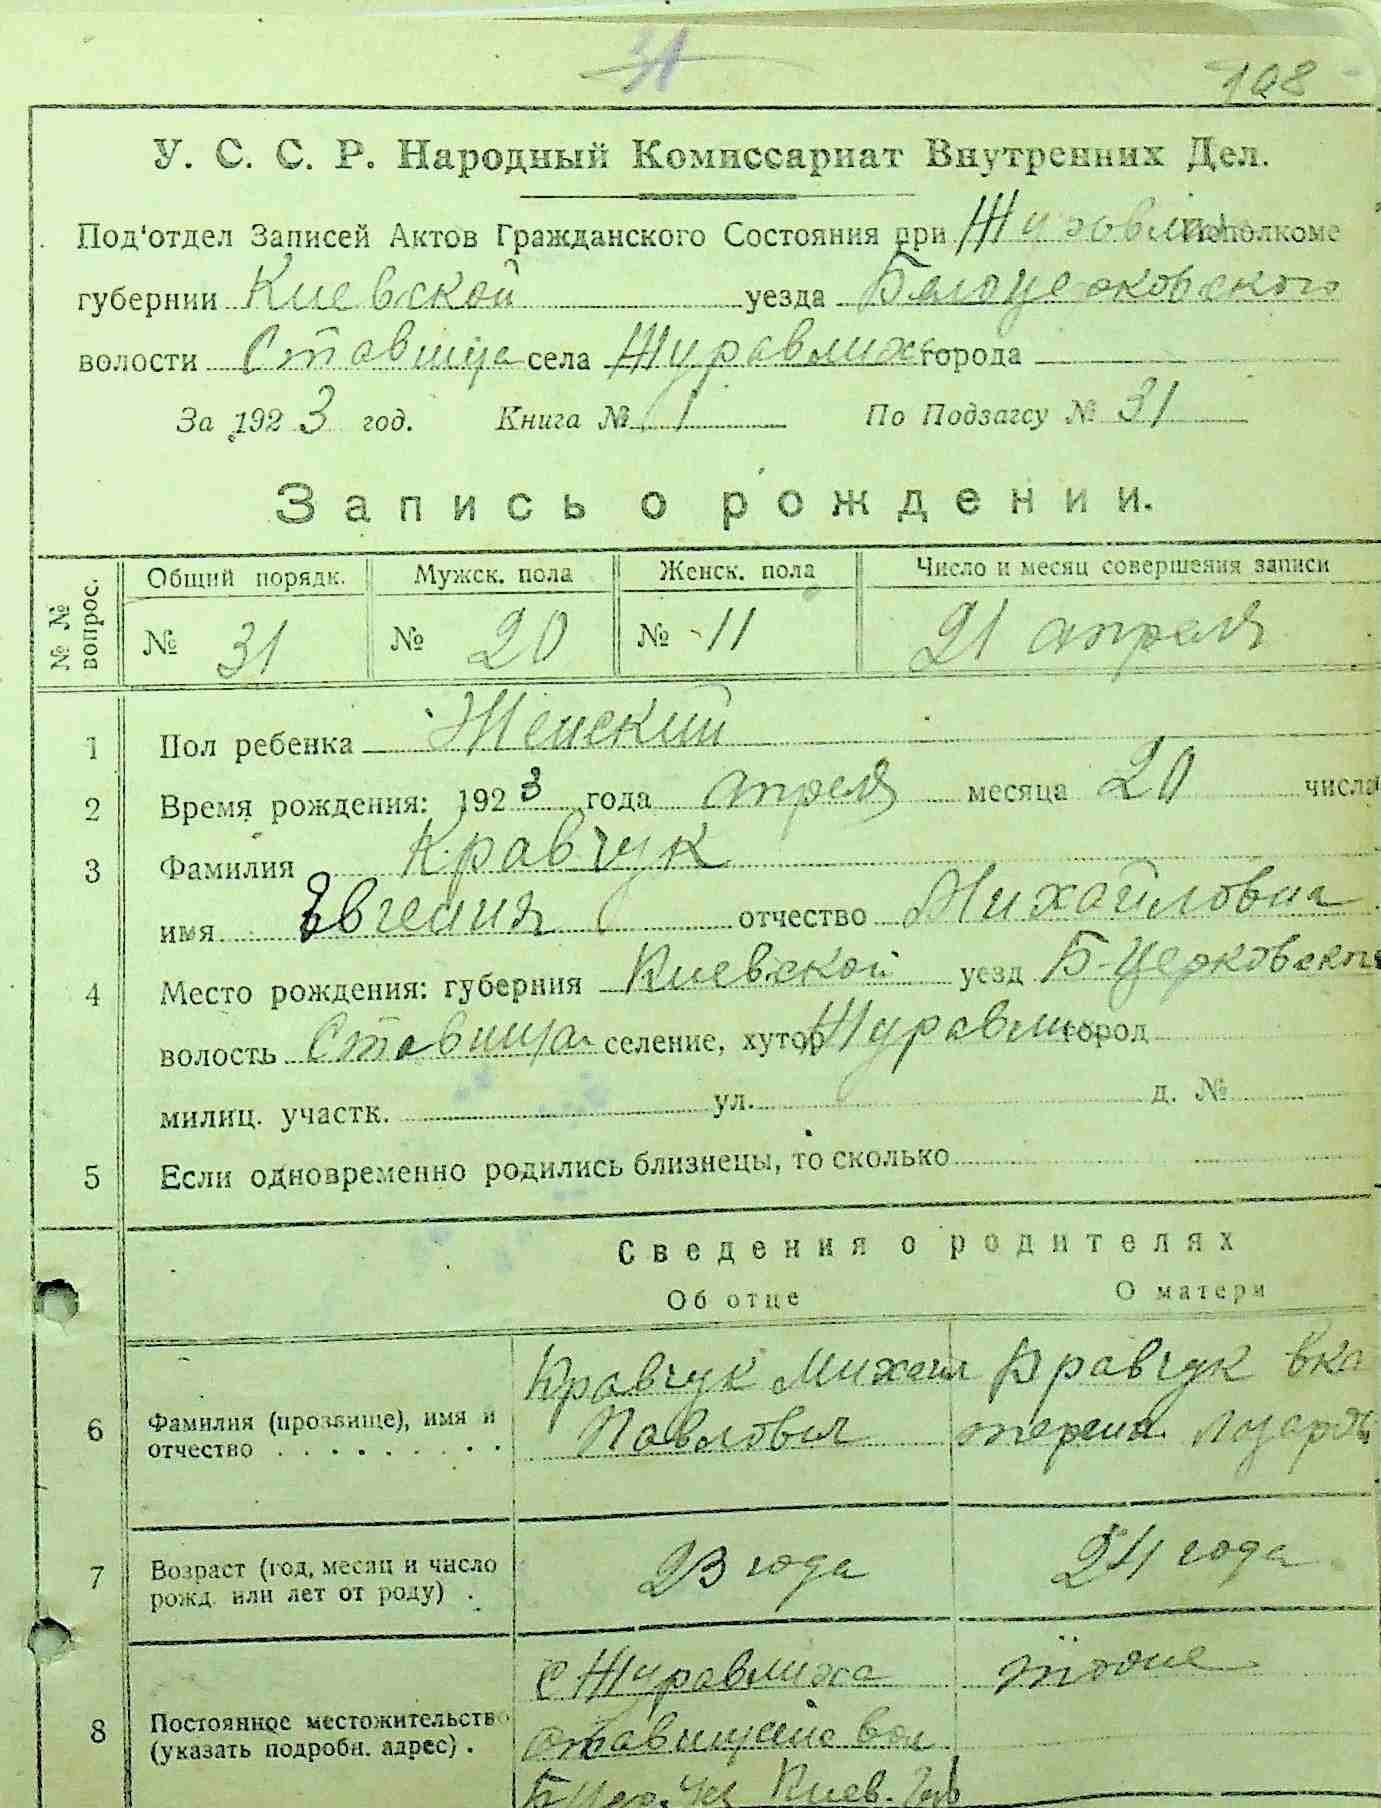 31
108
У. С. С. Р. Народный Комиссариат Внутренних Дел.
Под'отдел Записей Актов Гражданского Состояния при Исполкоме
губернии Киевской уезда Белоцерковского
волости Ставища села Журавлиха города
За 1923 год. Книга № 1 По Подзагсу № 31
Запись о рождении.
№№ вопрос.
Общий порядк. Мужск. пола Женск. пола Число и месяц совершения записи
№ 31 № 20 № 11 21 апреля
1 Пол ребенка Женский
2 Время рождения: 1923 года апреля месяца 20 числа
3 Фамилия Кравчук
имя Евгения отчество Михайловна
4 Место рождения: губерния Киевской уезд Б-Церковского
волость Ставища селение, хутор Журавлиха город
милиц. участк. ул. д. №
5 Если одновременно родились близнецы, то сколько
Сведения о родителях
Об отце О матери
Кравчук Михаил Кравчук Ека
6 Фамилия (прозвище), имя и
отчество . . . . . . . . . Павлович терина
7 Возраст (год, месяц и число
рожд. или лет от роду) . 23 года 24 года
с Журавлиха тоже
8 Постоянное местожительство
(указать подробн. адрес) . вол
Киев. Губ